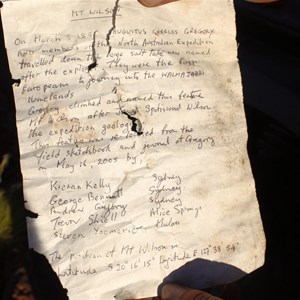 MT WILSON
On March AUGUSTUS CHARLES GREGORY
members of the North Australian Expedition
travelled down large salt lake now named
after the explorer. They were the first
Europeans to journey into the
homelands
Gregory climbed and named this feature
Mt after Wilson
the expedition geologist
This was from the
field sketchbook and journal of Gregory
on May 16, 2005 by;
Kieran Kelly Sydney
George Bennett Sydney
Andrew Sydney
Trevor Alice Springs
The position of Mt Wilson is
Latitude S 20° 16' 15" Longitude E 127° 38